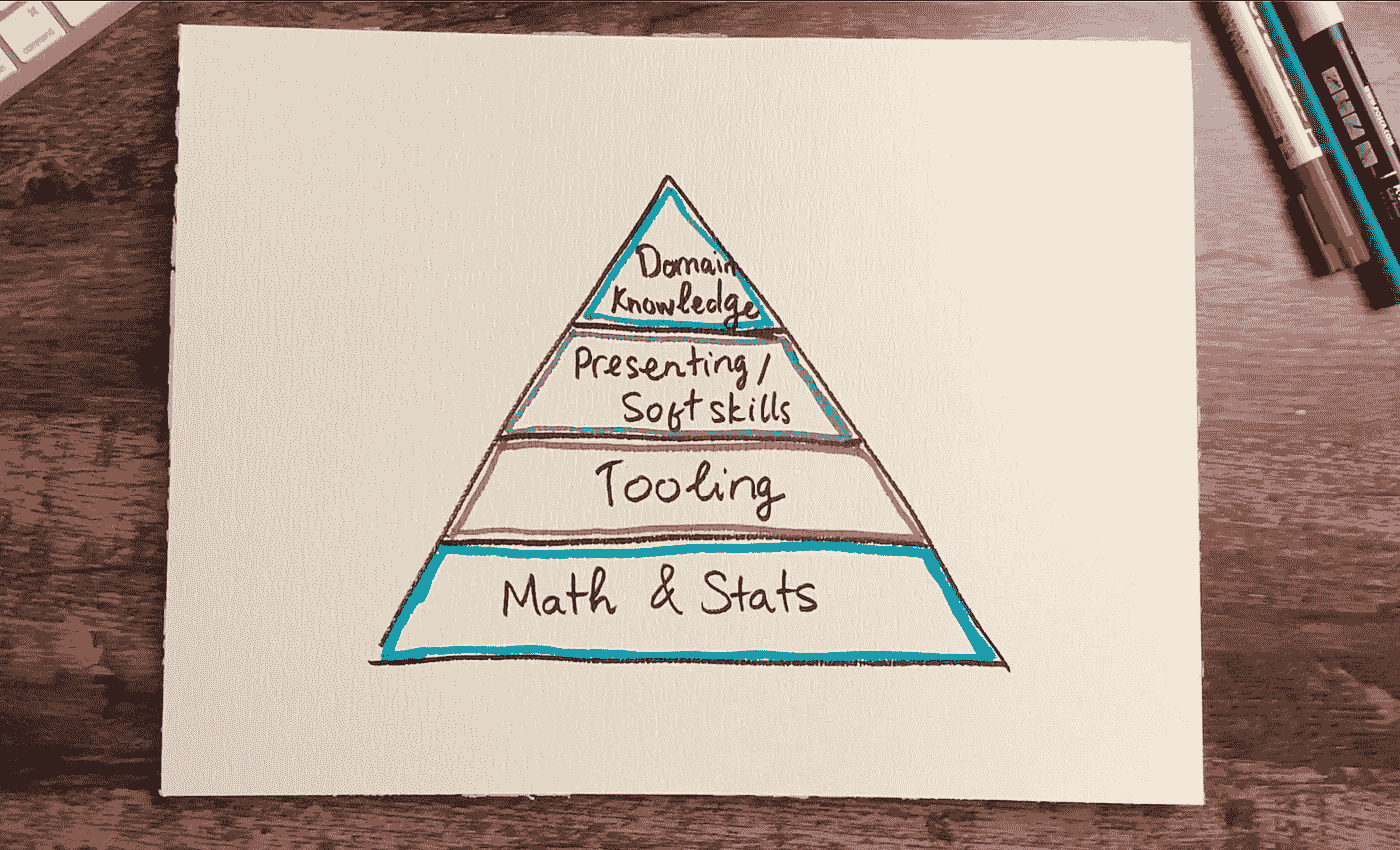 command
Domain
Knowledge
Presenting /
Soft skills
Tooling
Math & Stats